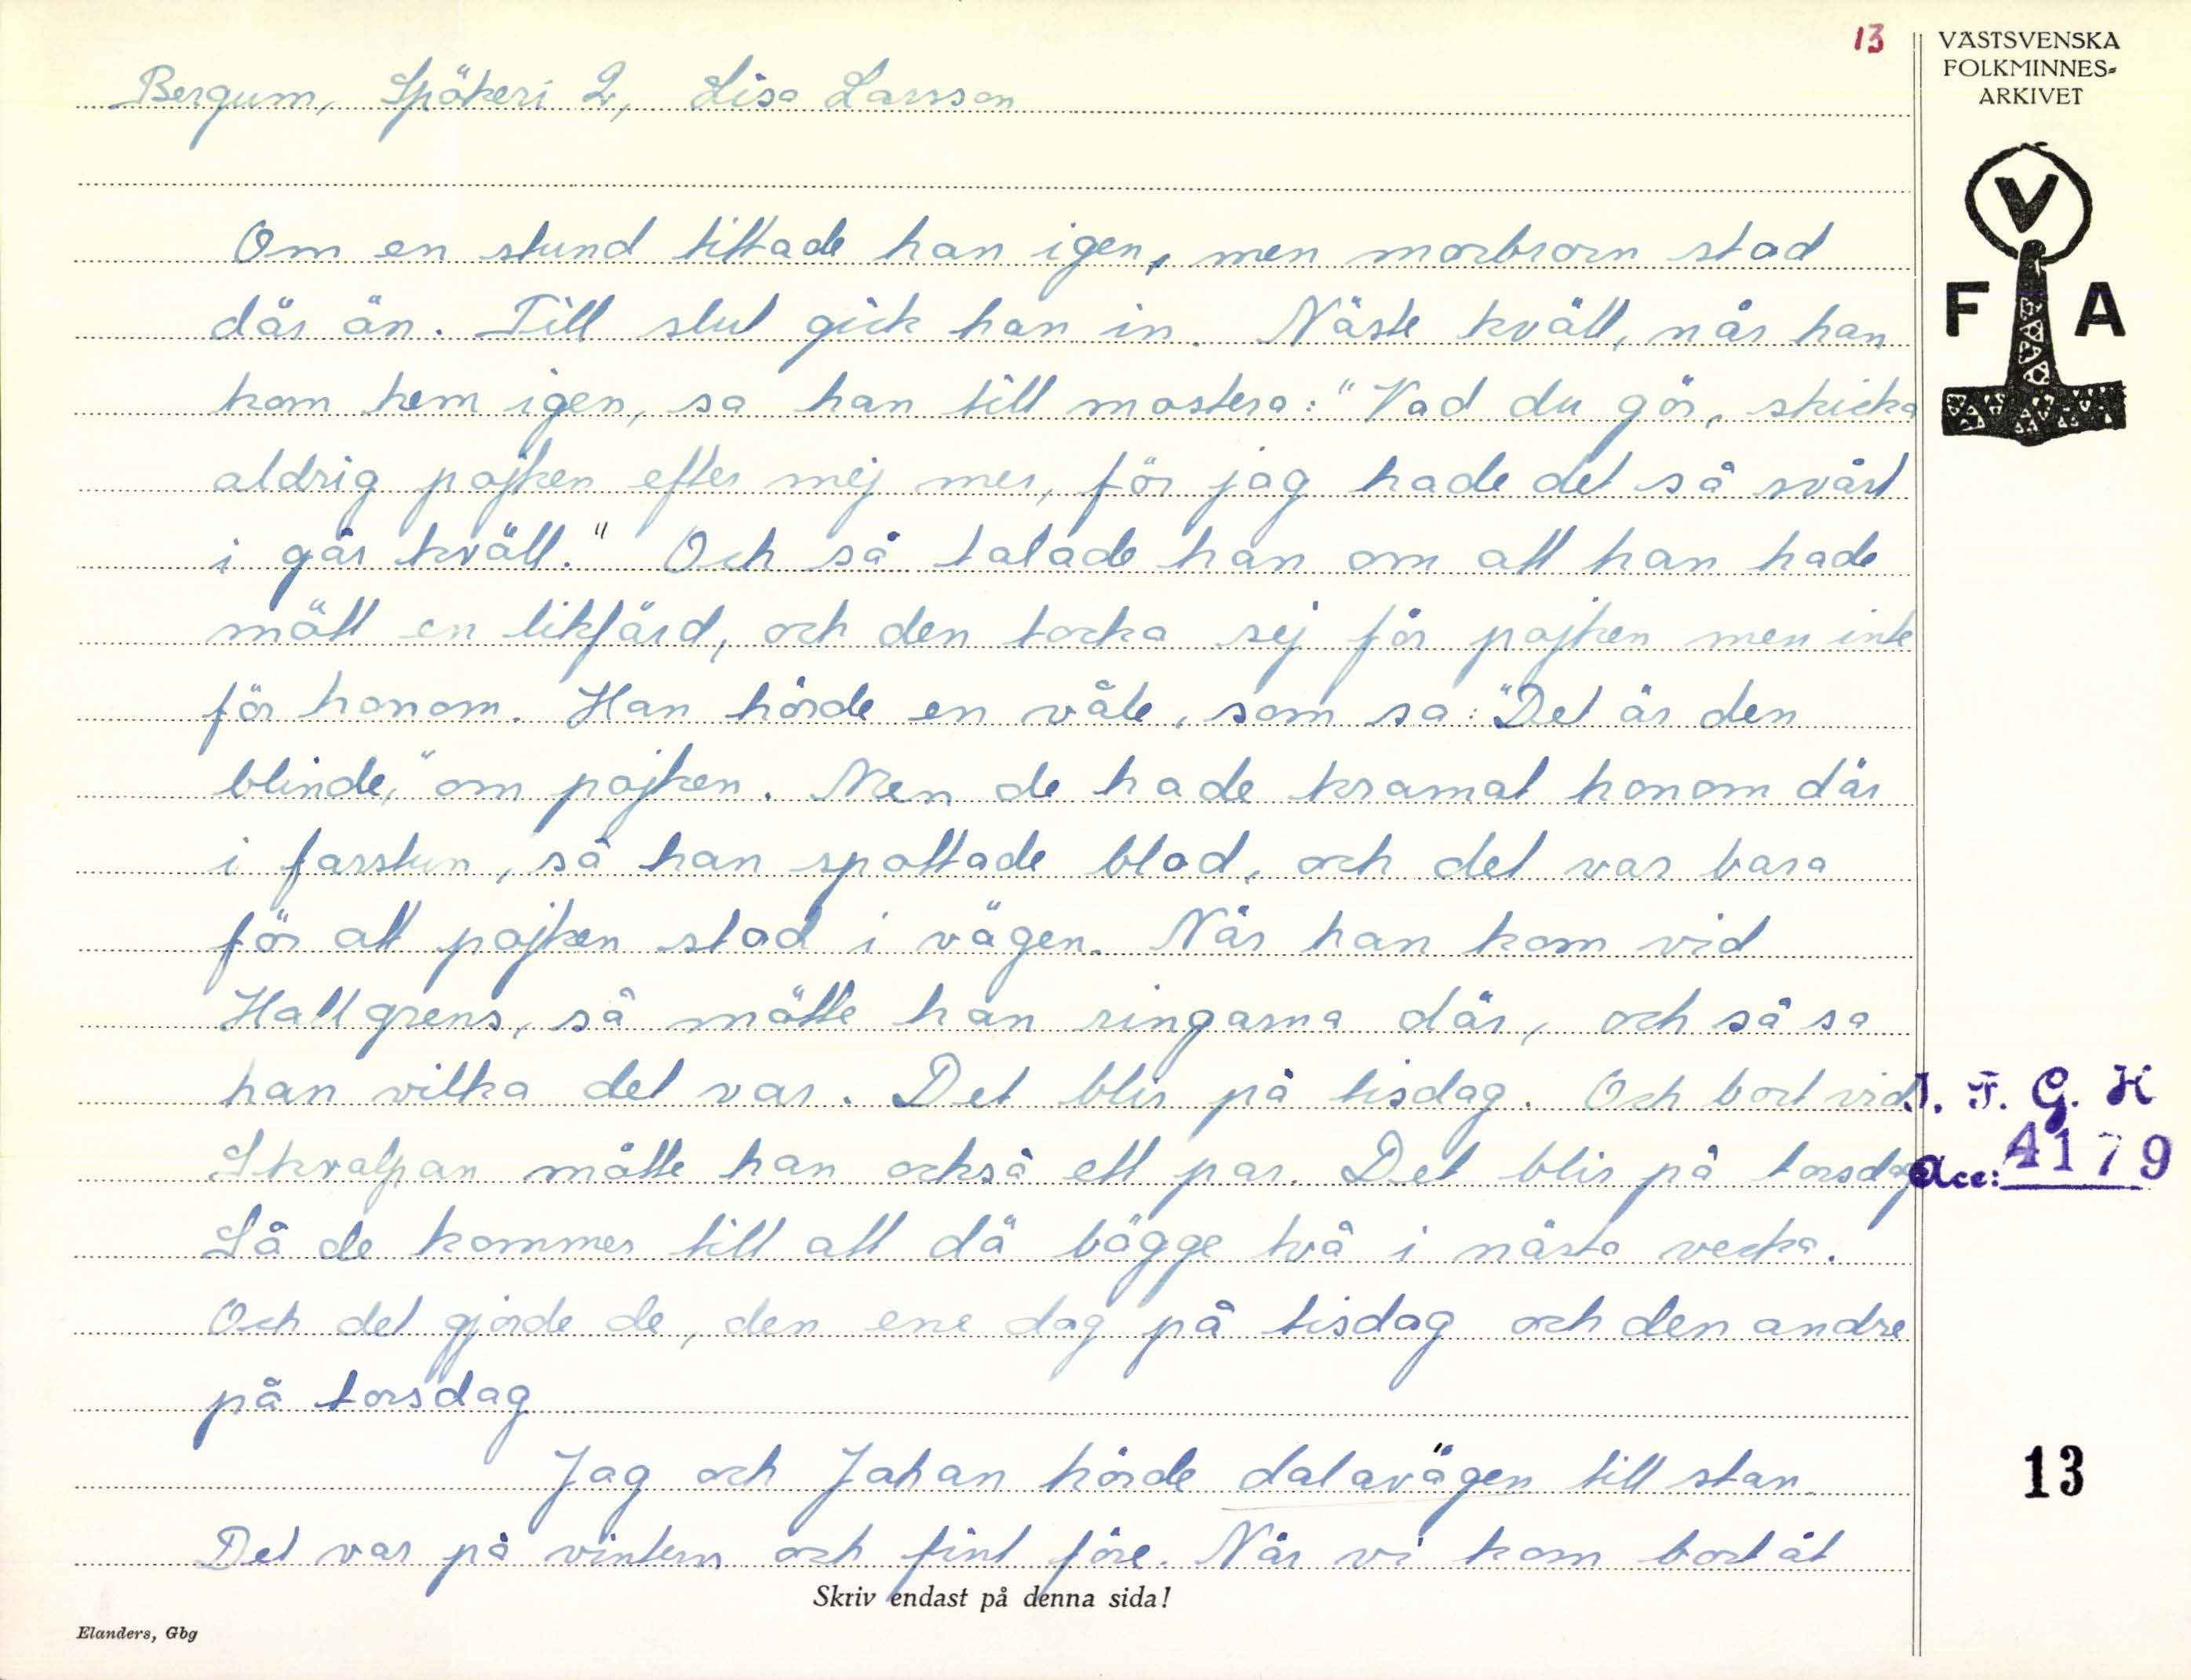 13
VÄSTSVENSKA
FOLKMINNES-
ARKIVET
V
F A
Bergum, Spökeri 2, Lisa Larsson
Om en stund tittade han igen, men morbrorn stod
där än. Till slut gick han in. Näste kväll, når han
kom hem igen, sa han till mostera: "Vad du gör, skicka
aldrig pojken efter mej mer, för jag hade det så svårt
i går kväll." Och så talade han om att han hade
mött en likfärd, och den tocka sej för pojken men inte
för honom. Han hörde en våle, som sa: "Det är den
blinde," om pojken. Men de hade kramat honom där
i farstun, så han spottade blod, och det var bara
för att pojken stod i vägen. När han kom vid
Hallgrens, så mötte han ringarna där, och så sa
han vilka det var. Det blir på tisdag. Och bort vid
Skvalpan mötte han också ett par. Det blir på torsdag
Så de kommer till att dö bägge två i nästa vecka.
Och det gjorde de, den ene dag på tisdag och den andre
på torsdag
Jag och Johan körde dalavägen till stan.
Det var på vintern och fint före. När vi kom bortåt
I. F. G. H
Acc: 4179
13
Skriv endast på denna sida!
Elanders, Gbg